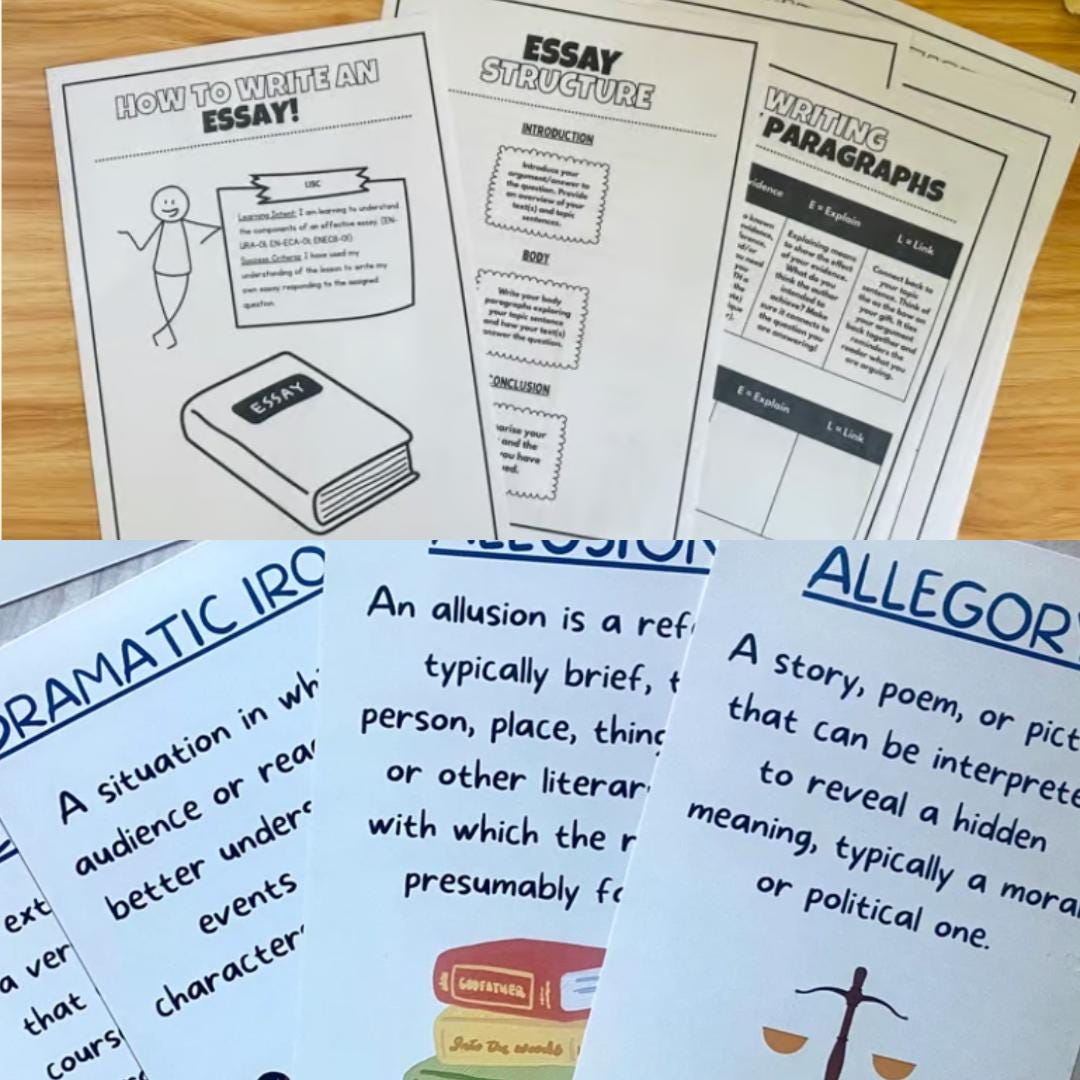 HOW TO WRITE AN
ESSAY!
LISC
Learning Intent: I am learning to understand
the components of an effective essay. (EN-
URA-01, EN-ECA-01, ENECB-01)
Success Criteria: I have used my
understanding of the lesson to write my
own essay responding to the assigned
question.
ESSAY
ESSAY
STRUCTURE
INTRODUCTION
Introduce your
argument/answer to
the question. Provide
an overview of your
text(s) and topic
sentences.
BODY
Write your body
paragraphs exploring
your topic sentence
and how your text(s)
answer the question.
ONCLUSION
arise your
and the
you have
ed.
WRITING
PARAGRAPHS
vidence
E = Explain
L = Link
a known
evidence,
erence,
nd/or
ou need
you
the
ate)
ique
Explaining means
to show the effect
of your evidence.
What do you
think the author
intended to
achieve? Make
sure it connects to
the question you
are answering!
Connect back to
your topic
sentence. Think of
the as the bow on
your gift. It ties
your argument
back together and
reminders the
reader what you
are arguing.
E = Explain
L = Link
ext
a ver
that
cours
DRAMATIC IRO
A situation in wh
audience or rea
better unders
events
character
ALLUSION
An allusion is a ref
typically brief, t
person, place, thing
or other literar
with which the r
presumably fa
GODFATHER
Into the woods
ALLEGORY
A story, poem, or pict
that can be interprete
to reveal a hidden
meaning, typically a moral
or political one.